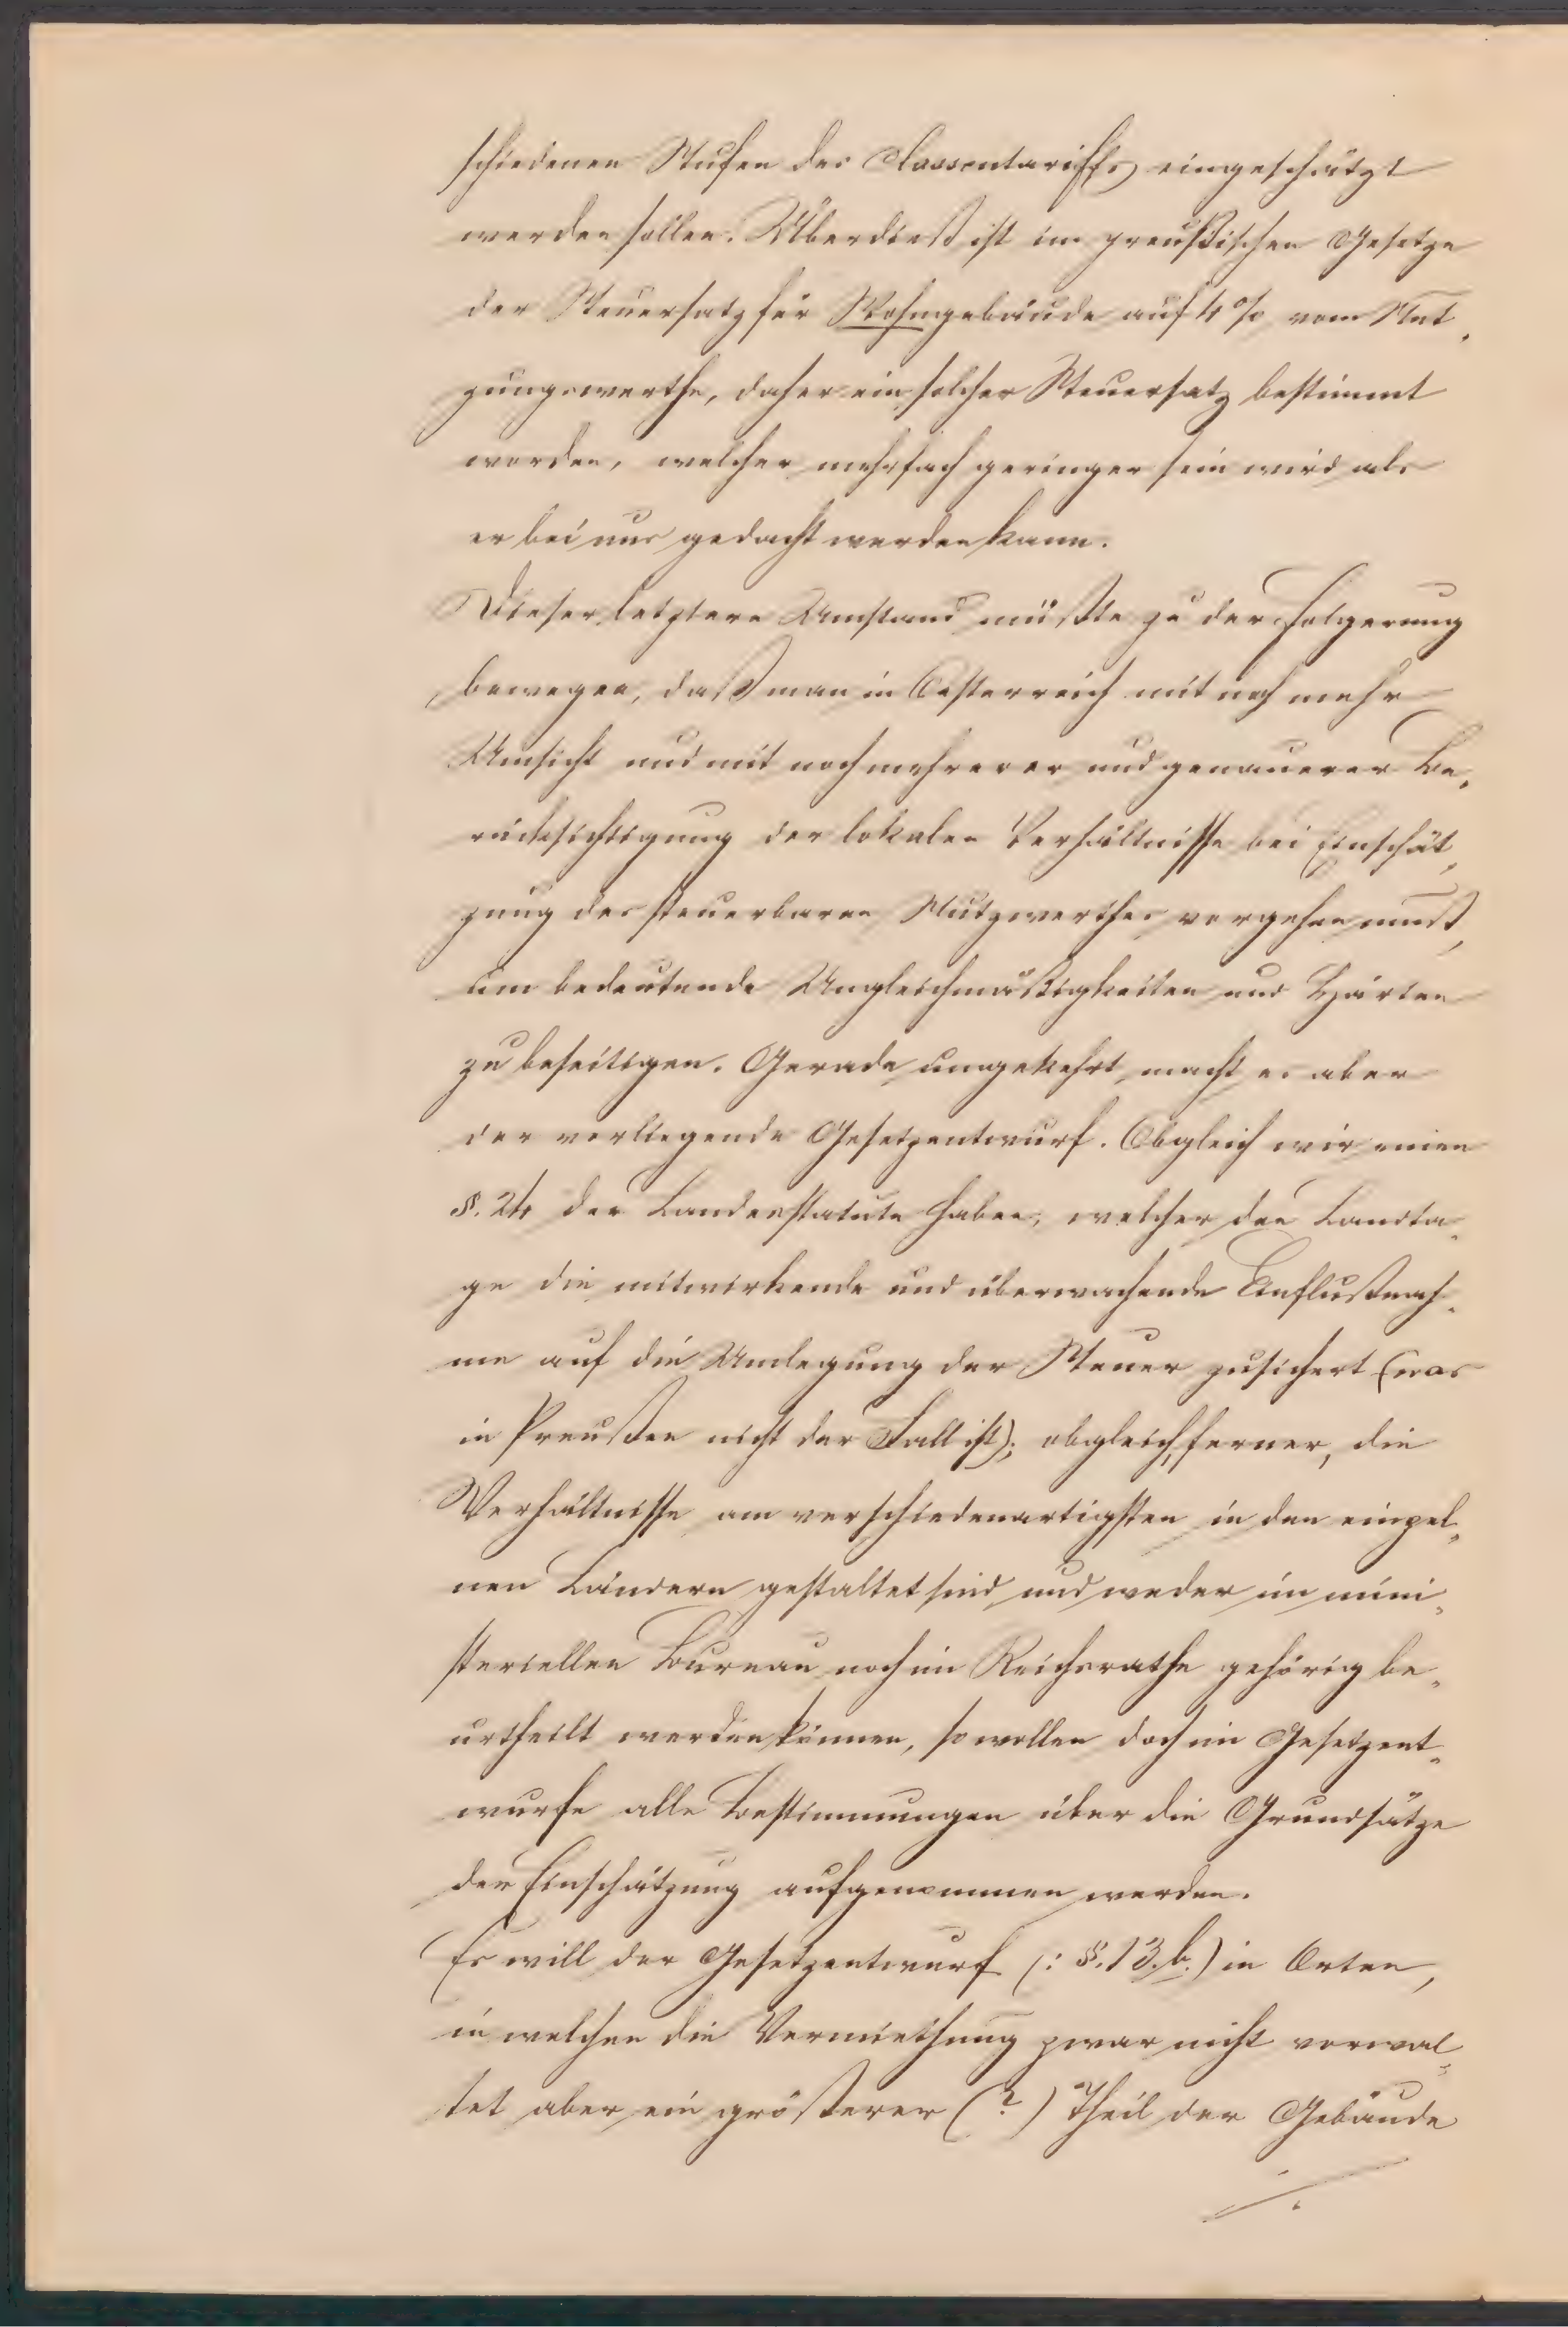 schiedenen Stufen des Classentariffs eingeschätzt
werden sollen. Überdieß ist im preußischen Gesetze
der Steuersatz für Wohngebäude auf 4% vom Nut„
zungswerthe, daher ein solcher Steuersatz bestimmt
worden, welcher mehrfach geringer sein wird als
er bei uns gedacht werden kann.
Dieser letztere Umstand müßte zu der Folgerung
bewegen, daß man in Oesterreich mit noch mehr
Umsicht und mit noch mehrerer und genauerer Be„
rücksichtigung der lokalen Verhältnisse bei Einschät„
zung des steuerbaren Nutzwerthes vorgehen muß,
um bedeutende Ungleichmäßigkeiten und Härten
zu beseitigen. Gerade umgekehrt macht es aber
der vorliegende Gesetzentwurf. Obgleich wir einen
§. 24 der Landesstatute haben, welcher den Landta„
ge die mitwirkende und überwachende Einflußnah„
me auf die Umlegung der Steuer zusichert (was
in Preußen nicht der Fall ist); obgleich, ferner, die
Verhältnisse am verschiedenartigsten in den einzel„
nen Ländern gestaltet sind, und weder im mini„
steriellen Bureau noch im Reichsrathe gehörig be„
urtheilt werden können, so wollen doch im Gesetzent„
wurfe alle Bestimmungen über die Grundsätze
der Einschätzung aufgenommen werden.
Es will der Gesetzentwurf (: §. 13. b.) in Orten,
in welchen die Vermiethung zwar nicht vorwal„
tet aber ein größerer (?) Theil der Gebäude
./.